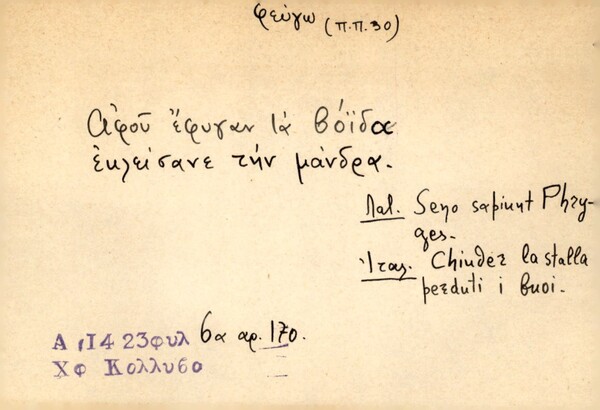 φεύγω (π.π.30)
Ἀφοῦ ἔφυγαν τὰ βόϊδα
ἐκλείσανε τὴν μάνδρα.
Λατ. Sero sapiunt Phry-
ges.
Ἰταλ. Chiuder la stalla
perduti i buoi.
Α ,14 23φυλ 6α αρ. 170.
Χφ Κολλυβο